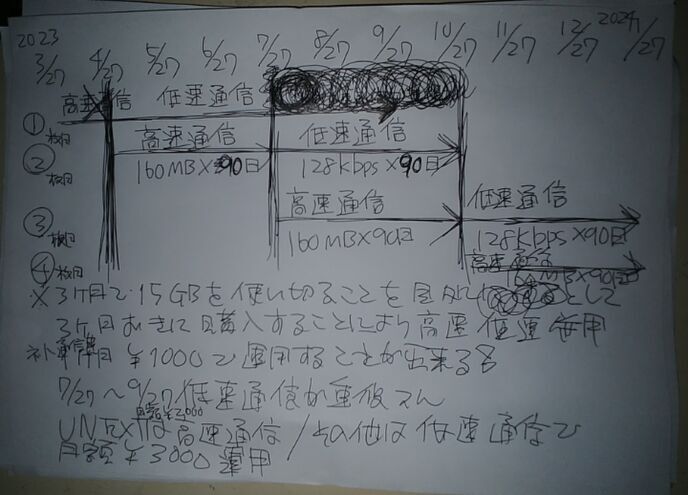 2023 2024
3/27 4/27 5/27 6/27 7/27 8/27 9/27 10/27 11/27 12/27 1/27
高速通信 低速通信
①枚目
高速通信 低速通信
②枚目 160MB×90日 128kbps×90日
高速通信 低速通信
③枚目 160MB×90日 128kbps×90日
高速通信
④枚目 MB×90日
※3ヶ月で15GBを使い切ることを として
3ヶ月おきに購入することにより高速低速 用
通信 ¥1000で運用することが出来る
7/27〜9/27低速通信が重複
月額¥2,000
は高速通信/その他は低速通信で
月額¥3000運用